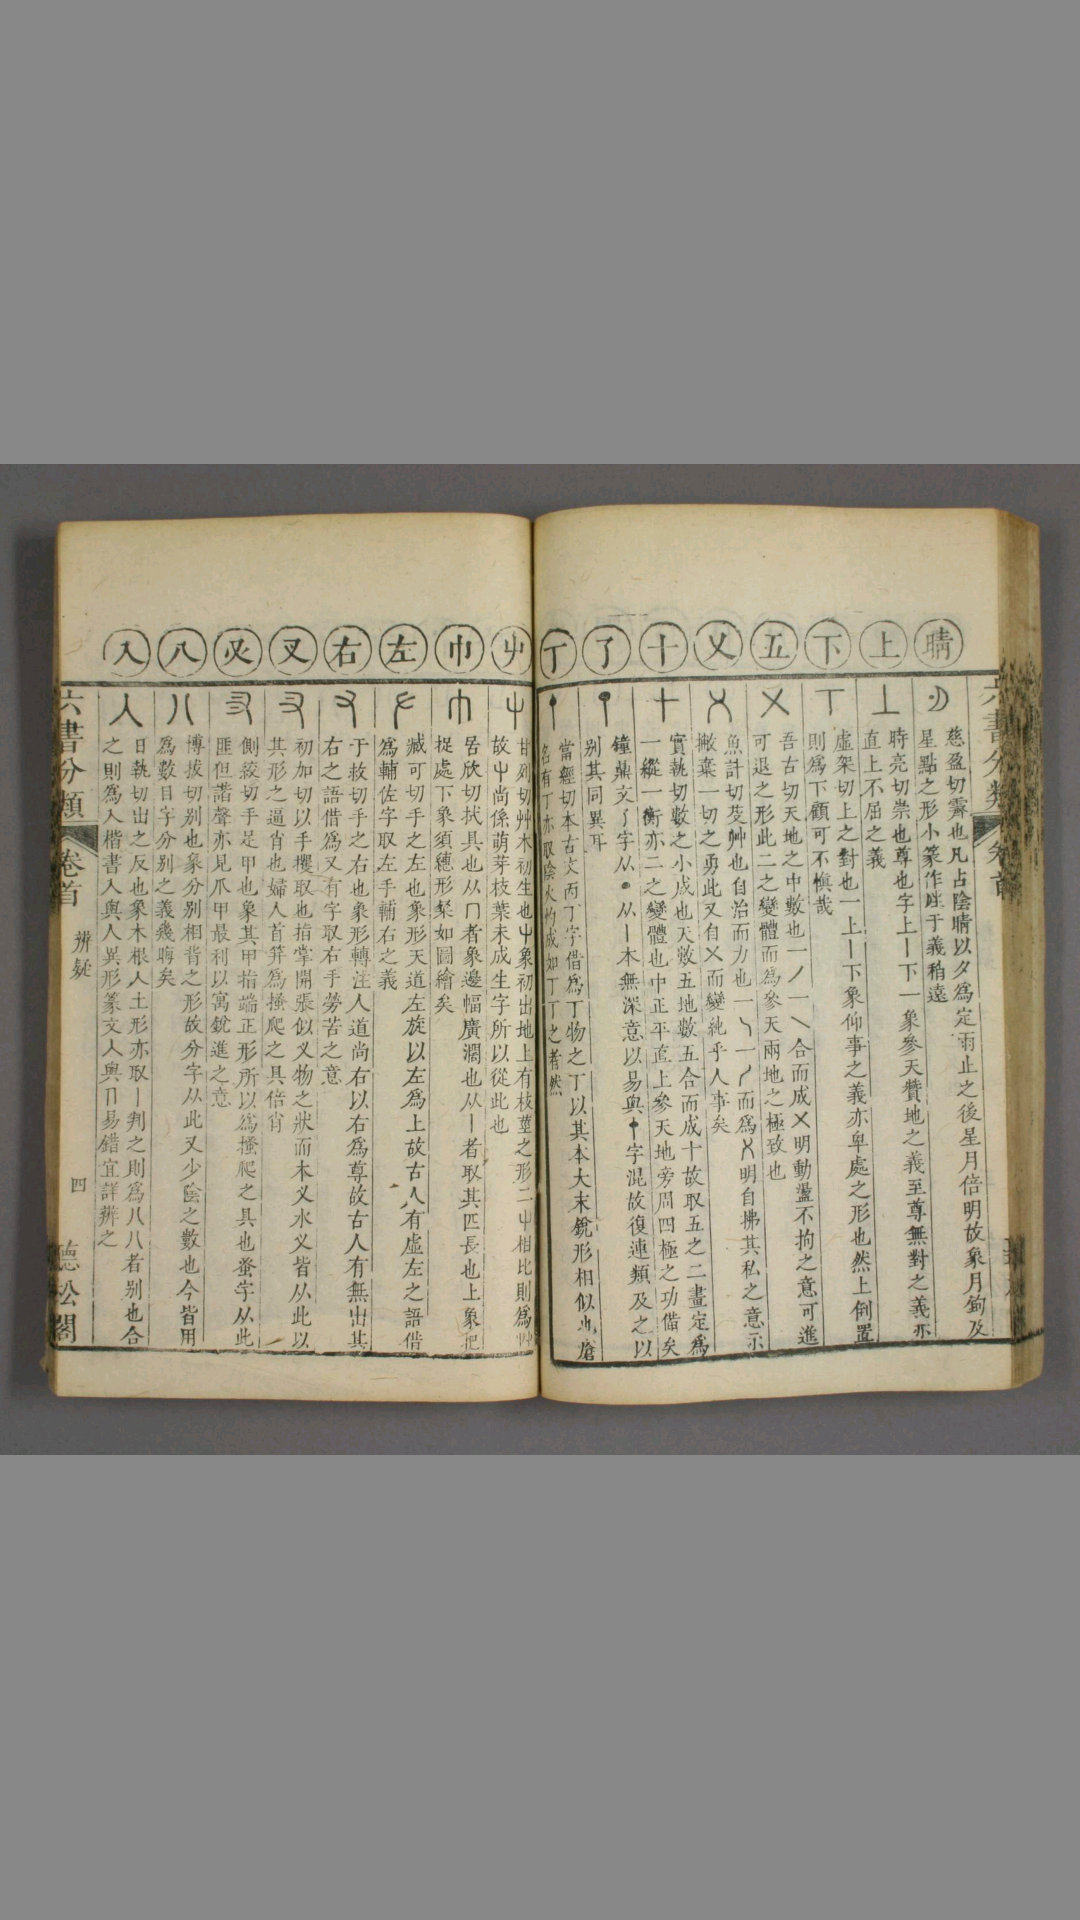 晴
慈盈切霽也凡占陰晴以夕為定雨止之後星月倍明故象月鉤及
星點之形小篆作㫰于義稍遠
上
時亮切崇也尊也字上丨下一象參天贊地之義至尊無對之義亦
直上不屈之義
下
虛架切上之對也一上丨下象仰事之義亦卑處之形也然上倒置
則為下顧可不慎哉
五
吾古切天地之中數也一㇒一㇏合而成㐅明動盪不拘之意可進
可退之形此二之變體而為參天兩地之極致也
乂
魚計切芟艸也自治而力也一㇏一㇒而為乂明自拂其私之意示
撇棄一切之勇此又自㐅而變純乎人事矣
十
實執切數之小成也天數五地數五合而成十故取五之二畫定為
一縱一衡亦二之變體也中正平直上參天地旁周四極之功借矣
了
鐘鼎文了字从●从丨本無深意以易與字混故復連類及之以
别其同異耳
丁
當經切本古文丙丁字借為丁物之丁以其本大末銳形相似也瘡
名有丁亦取陰火灼成如丁丁之者然
屮
甘列切艸木初生也屮象初出地上有枝莖之形二屮相比則為艸
故屮尚係萌芽枝葉未成生字所以從此也
巾
居欣切拭具也从冂者象邊幅廣濶也从丨者取其匹長也上象把
捉處下象須穗形粲如圖繪矣
左
臧可切手之左也象形天道左旋以左為上故古人有虛左之語借
為輔佐字取左手輔右之義
右
于救切手之右也象形轉注人道尚右以右為尊故古人有無出其
右之語借為又有字取右手勞苦之意
叉
初加切以手㩴取也指掌開張似义物之狀而木义水义皆从此以
其形之逼肖也婦人首笄為搔爬之具倍肖
㕚
側絞切手足甲也象其甲指端正形所以為搔爬之具也蚤字从此
匪但諧聲亦見爪甲最利以寓銳進之意
八
博拔切别也象分别相背之形故分字从此又少陰之數也今皆用
為數目字分别之義幾晦矣
入
日執切出之反也象木根入土形亦取丨判之則為八八者别也合
之則為入楷書入與人異形篆文人與冂易錯宜詳辨之
六書分類
卷首
辨疑
四
聽松閣